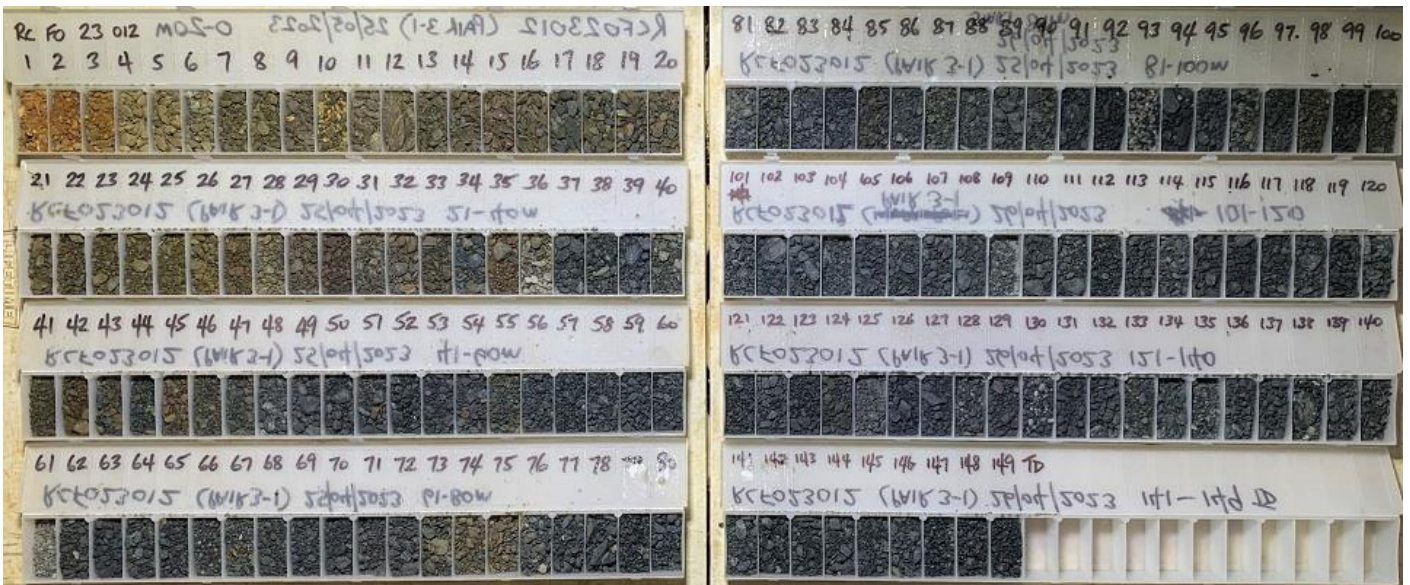 RC FO 23 012 RCFO23012 (PAIR 3-1) 25/05/2023 0-20m
1 2 3 4 5 6 7 8 9 10 11 12 13 14 15 16 17 18 19 20
21 22 23 24 25 26 27 28 29 30 31 32 33 34 35 36 37 38 39 40
RCFO23012 (PAIR 3-1) 25/04/2023 21-40m
41 42 43 44 45 46 47 48 49 50 51 52 53 54 55 56 57 58 59 60
RCFO23012 (PAIR 3-1) 25/04/2023 41-60m
61 62 63 64 65 66 67 68 69 70 71 72 73 74 75 76 77 78 80
RCFO23012 (PAIR 3-1) 25/04/2023 61-80m
81 82 83 84 85 86 87 88 89 90 91 92 93 94 95 96 97. 98 99 100
26/04/2023
RCFO23012 (PAIR 3-1) 25/04/2023 81-100m
101 102 103 104 105 106 107 108 109 110 111 112 113 114 115 116 117 118 119 120
PAIR 3-1
RCFO23012 ( ) 26/04/2023 101-120
121 122 123 124 125 126 127 128 129 130 131 132 133 134 135 136 137 138 139 140
RCFO23012 (PAIR 3-1) 26/04/2023 121-140
141 142 143 144 145 146 147 148 149 TD
RCFO23012 (PAIR 3-1) 26/04/2023 141-149 TD